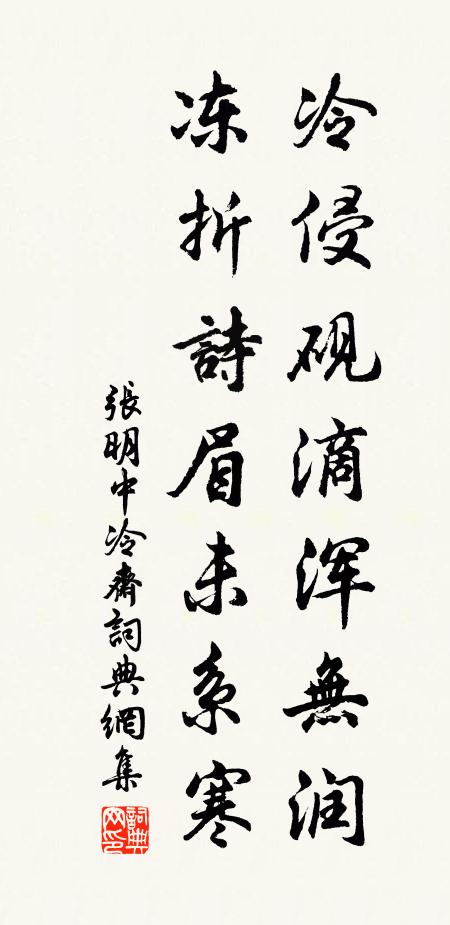 冷侵砚滴浑無润
冻折詩眉未系寒
張明中冷齋詞典網集
詞典网印